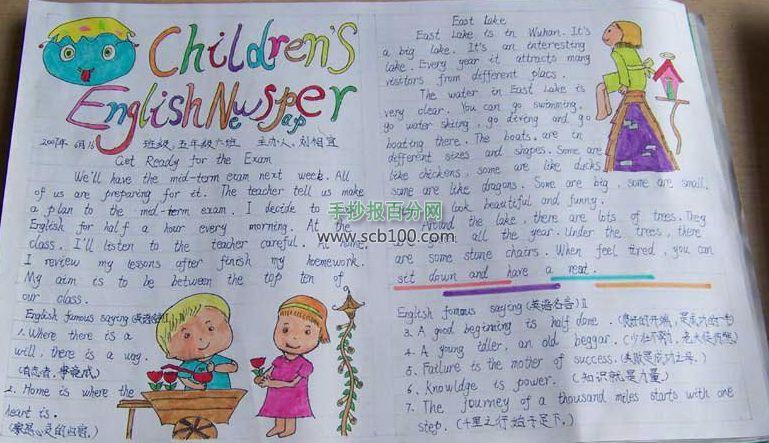 Children's
English Newspaper
2007年 6月16 班级、五年级六班 主办人、刘相宜
Get Ready for the Exam
We'll have the mid-term exam next week. All
of us are preparing for it. The teacher tell us make
a plan to the mid-term exam. I decide to
English for half a hour every morning. At the
class. I'll listen to the teacher careful. At home
I review my lessons after finish my homework.
My aim is to be between the top ten of
our class.
English famous saying (英语名言) I
1. Where there is a
will, there is a way.
(有志者,事竟成)
2. Home is where the
heart is.
East Lake
East Lake is in Wuhan. It's
a big lake. It's an interesting
lake. Every year it attracts many
visitors from different placs.
The water in East Lake is
very clear. You can go swimming,
go water skiing, go diving and go
boating there. The boats are in
different sizes and shapes. Some are
like chickens, some are like ducks
some are like dragons. Some are big, some are small.
look beautiful and funny.
Around the lake, there are lots of trees. They
all the year. Under the trees, there
are some stone chairs. When feel tired, you can
sit down and have a reat.
English famous saying (英语名言) II
3. A good beginning is half done. (良好的开端,是成功的一半)
4. A young idler, an old beggar. (少壮不努力,老大徒伤悲)
5. Failure is the mother of success. (失败是成功之母。)
6. Knowldge is power. (知识就是力量)
7. The journey of a thousand miles starts with one
step. (千里之行始于足下。)
手抄报百分网
www.scb100.com